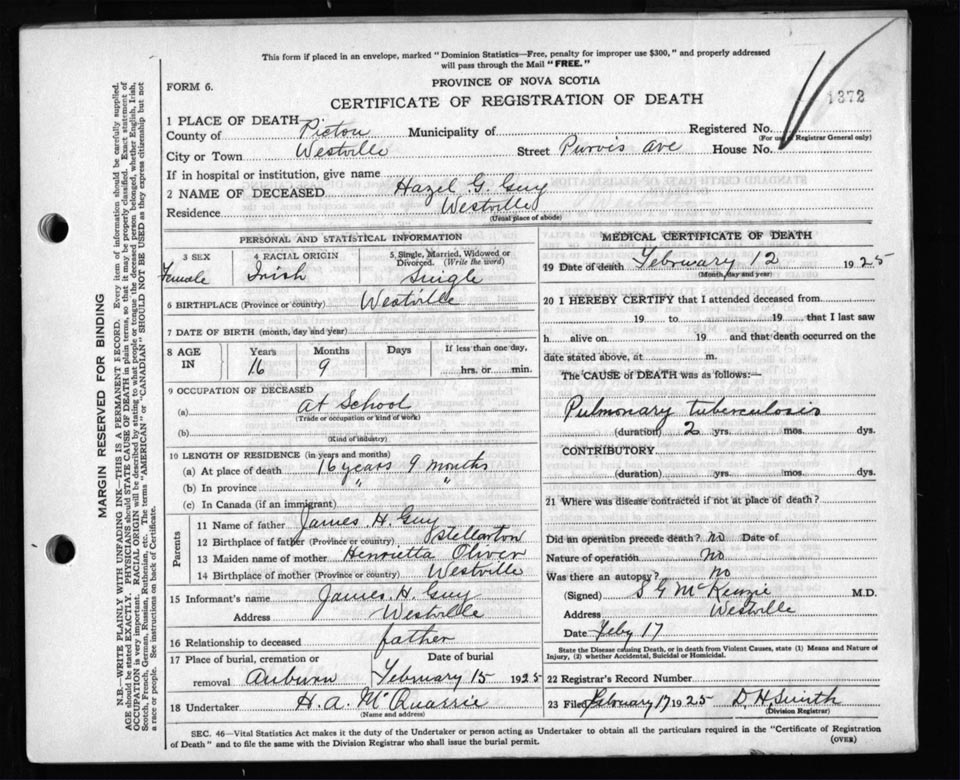 This form if placed in an envelope, marked "Dominion Statistics—Free, penalty for improper use $300," and properly addressed
will pass through the Mail "FREE."
PROVINCE OF NOVA SCOTIA
FORM 6.
CERTIFICATE OF REGISTRATION OF DEATH
1372
1 PLACE OF DEATH
County of Pictou Municipality of Registered No.
(For use of Registrar General only)
City or Town Westville Street Purvis Ave House No.
If in hospital or institution, give name
2 NAME OF DECEASED Hazel G. Guy
Residence Westville
(Usual place of abode)
PERSONAL AND STATISTICAL INFORMATION
3 SEX 4 RACIAL ORIGIN 5 Single, Married, Widowed or
Divorced. (Write the word)
Female Irish Single
6 BIRTHPLACE (Province or country) Westville
7 DATE OF BIRTH (month, day and year)
8 AGE IN Years Months Days If less than one day,
16 9 hrs. or min.
9 OCCUPATION OF DECEASED
(a) At School
(Trade or occupation or kind of work)
(b)
(Kind of industry)
10 LENGTH OF RESIDENCE (in years and months)
(a) At place of death 16 years 9 months
(b) In province " "
(c) In Canada (if an immigrant)
Parents
11 Name of father James H. Guy
12 Birthplace of father (Province or country) Stellarton
13 Maiden name of mother Henrietta Oliver
14 Birthplace of mother (Province or country) Westville
15 Informant's name James H. Guy
Address Westville
16 Relationship to deceased father
17 Place of burial, cremation or Date of burial
removal Auburn February 15 1925
18 Undertaker H. A. McQuarrie
(Name and address)
MEDICAL CERTIFICATE OF DEATH
19 Date of death February 12 1925
(Month, day and year)
20 I HEREBY CERTIFY that I attended deceased from
19 to 19 that I last saw
h alive on 19 and that death occurred on the
date stated above, at m.
The CAUSE of DEATH was as follows:—
Pulmonary tuberculosis
(duration) 2 yrs. mos. dys.
CONTRIBUTORY
(duration) yrs. mos. dys.
21 Where was disease contracted if not at place of death?
Did an operation precede death? no Date of
Nature of operation No
Was there an autopsy? no
(Signed) S G McKenzie M.D.
Address Westville
Date Feby 17
State the Disease causing Death, or in death from Violent Causes, state (1) Means and Nature of
Injury, (2) whether Accidental, Suicidal or Homicidal.
22 Registrar's Record Number
23 Filed February 17 1925 D. H. Smith
(Division Registrar)
SEC. 46—Vital Statistics Act makes it the duty of the Undertaker or person acting as Undertaker to obtain all the particulars required in the "Certificate of Registration
of Death" and to file the same with the Division Registrar who shall issue the burial permit.
(OVER)
MARGIN RESERVED FOR BINDING
N.B.—WRITE PLAINLY WITH UNFADING INK—THIS IS A PERMANENT RECORD. Every item of information should be carefully supplied.
AGE should be stated EXACTLY. PHYSICIANS should STATE CAUSE OF DEATH in plain terms, so that it may be properly classified. Exact statement of
OCCUPATION is very important. RACIAL ORIGIN will be described by stating to what people or tongue the deceased person belonged, whether English, Irish,
Scotch, French, German, Russian, Ruthenian, etc. The terms "AMERICAN" or "CANADIAN" SHOULD NOT BE USED as they express citizenship but not
a race or people. See instructions on back of Certificate.